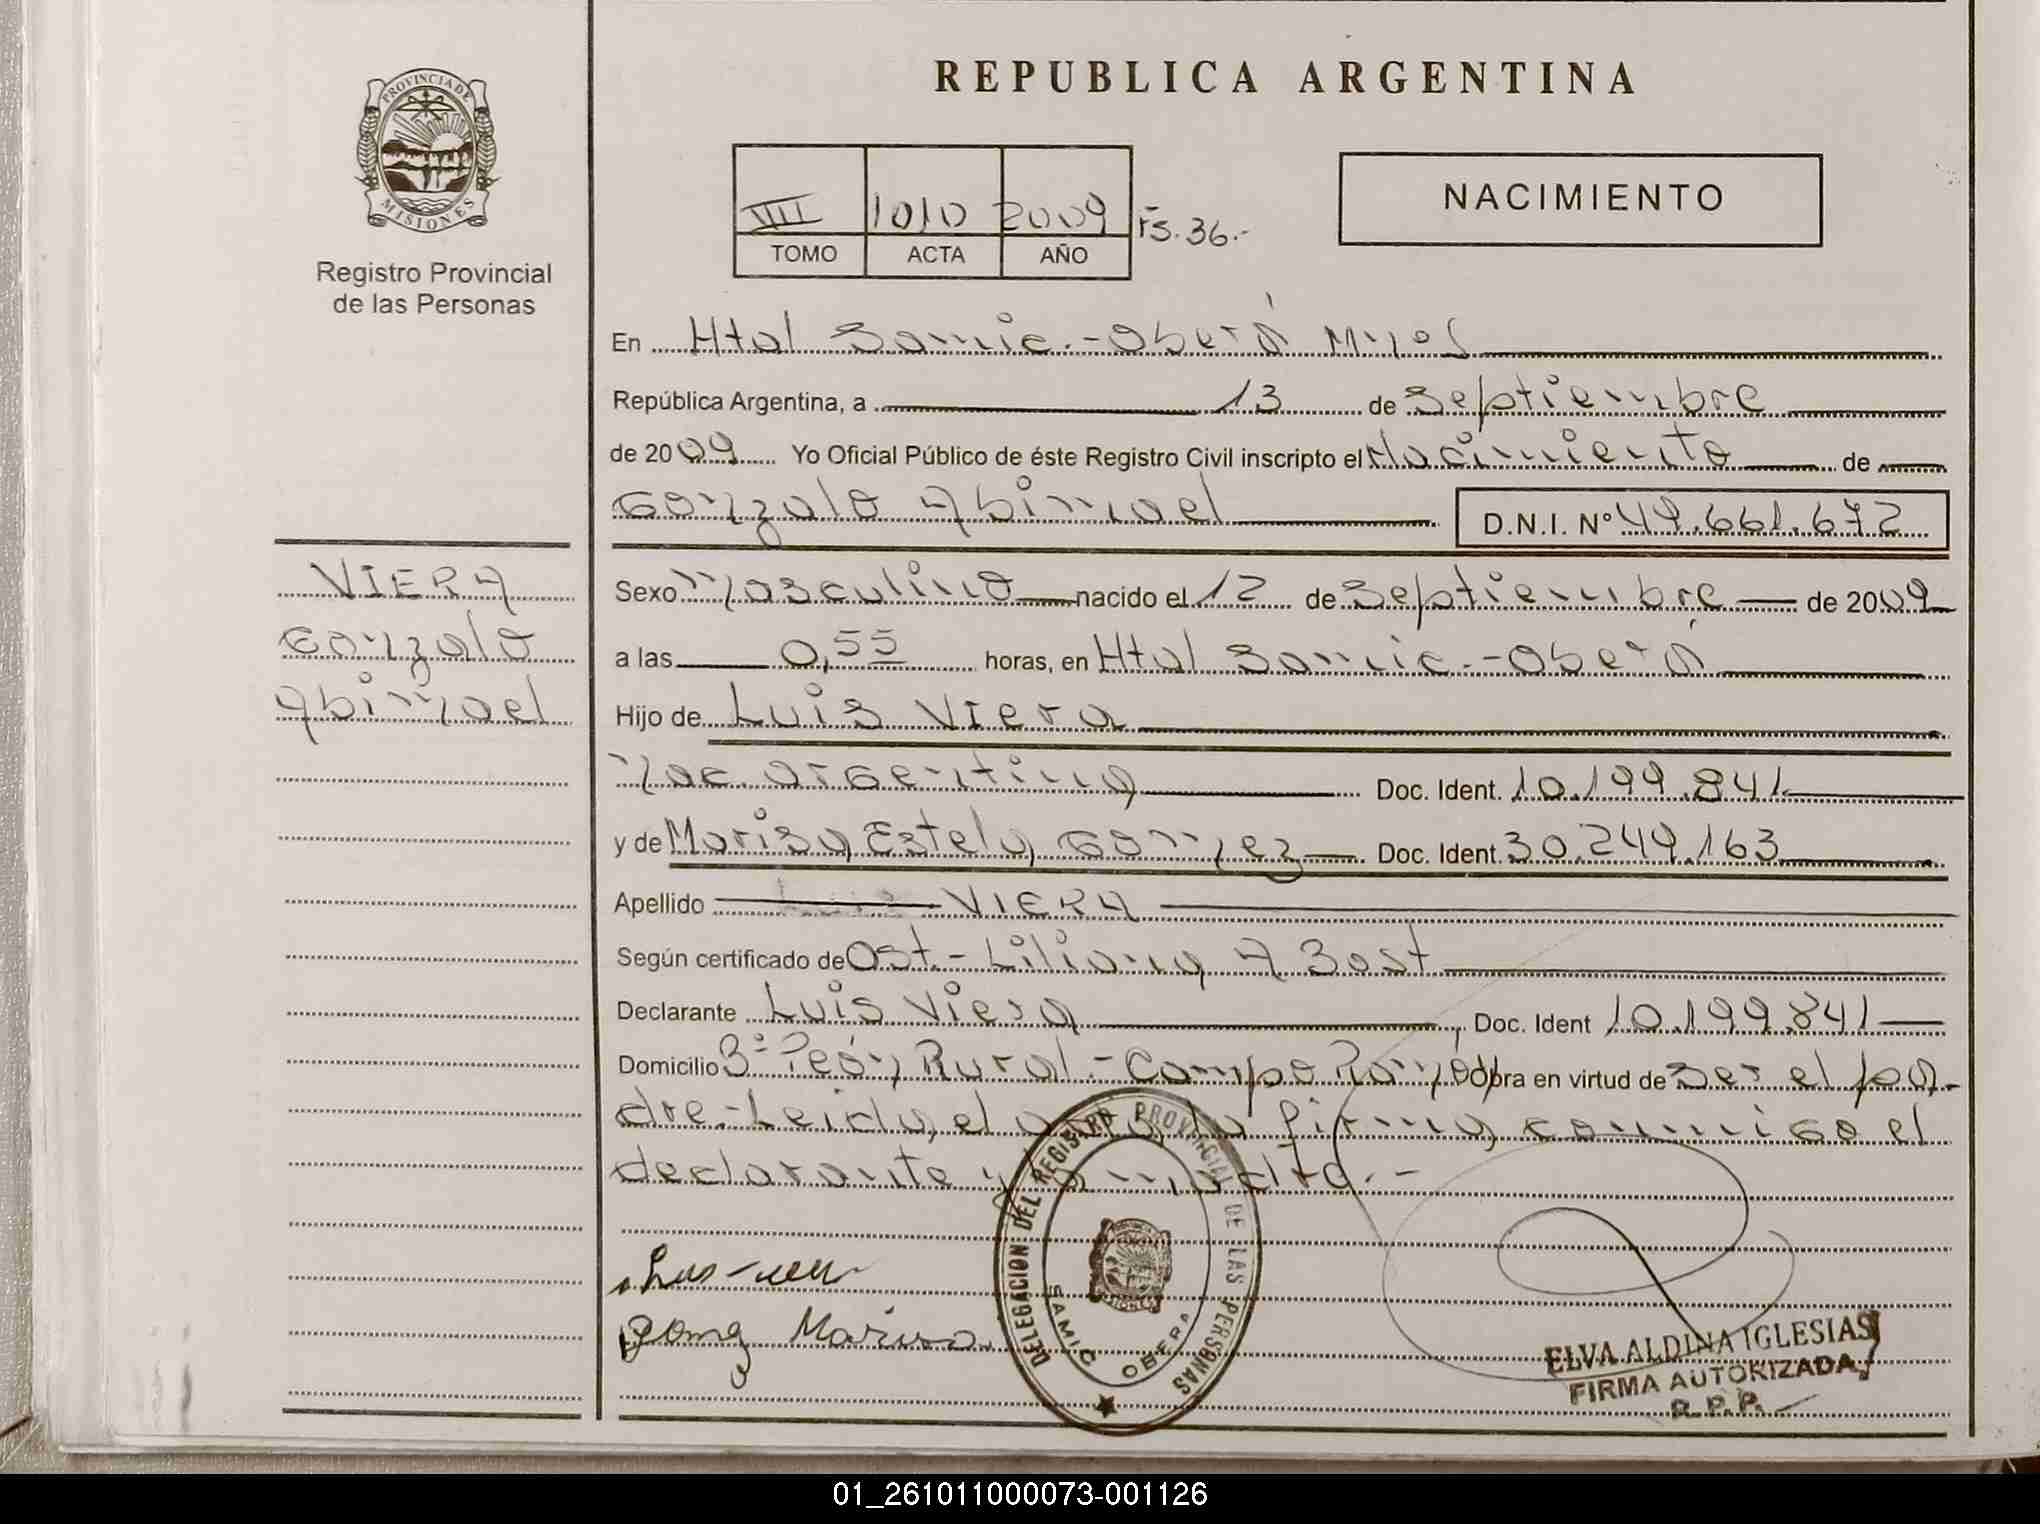 REPUBLICA ARGENTINA
PROVINCIA DE
MISIONES
Registro Provincial
de las Personas
VIII 1010 2009 Fs. 36.-
TOMO ACTA AÑO
NACIMIENTO
En Htal Samic.-Oberá Mnes
República Argentina, a 13 de Septiembre
de 2009 Yo Oficial Público de éste Registro Civil inscripto el Nacimiento de
Gonzalo Abimael D.N.I. N° 49.661.672
VIERA
Gonzalo
Abimael
Sexo Masculino nacido el 12 de Septiembre de 2009
a las 0,55 horas, en Htal Samic.-Oberá
Hijo de Luis Viera
Nac. Argentina Doc. Ident. 10.199.841
y de Marisa Estela Gomez Doc. Ident. 30.249.163
Apellido VIERA
Según certificado de Ost.- Liliana A Bast
Declarante Luis Viera, Doc. Ident 10.199.841
Domicilio B° Peón Rural - Campo Ramón Obra en virtud de Ser el pa-
dre.-Leida el acta, la firma conmigo el
declarante y la madre.-
Gomez Marisa
DELEGACION DEL REGISTRO PROVINCIAL DE LAS PERSONAS
SAMIC OBERA
ELVA ALDINA IGLESIAS
FIRMA AUTORIZADA
R.P.P.
01_261011000073-001126